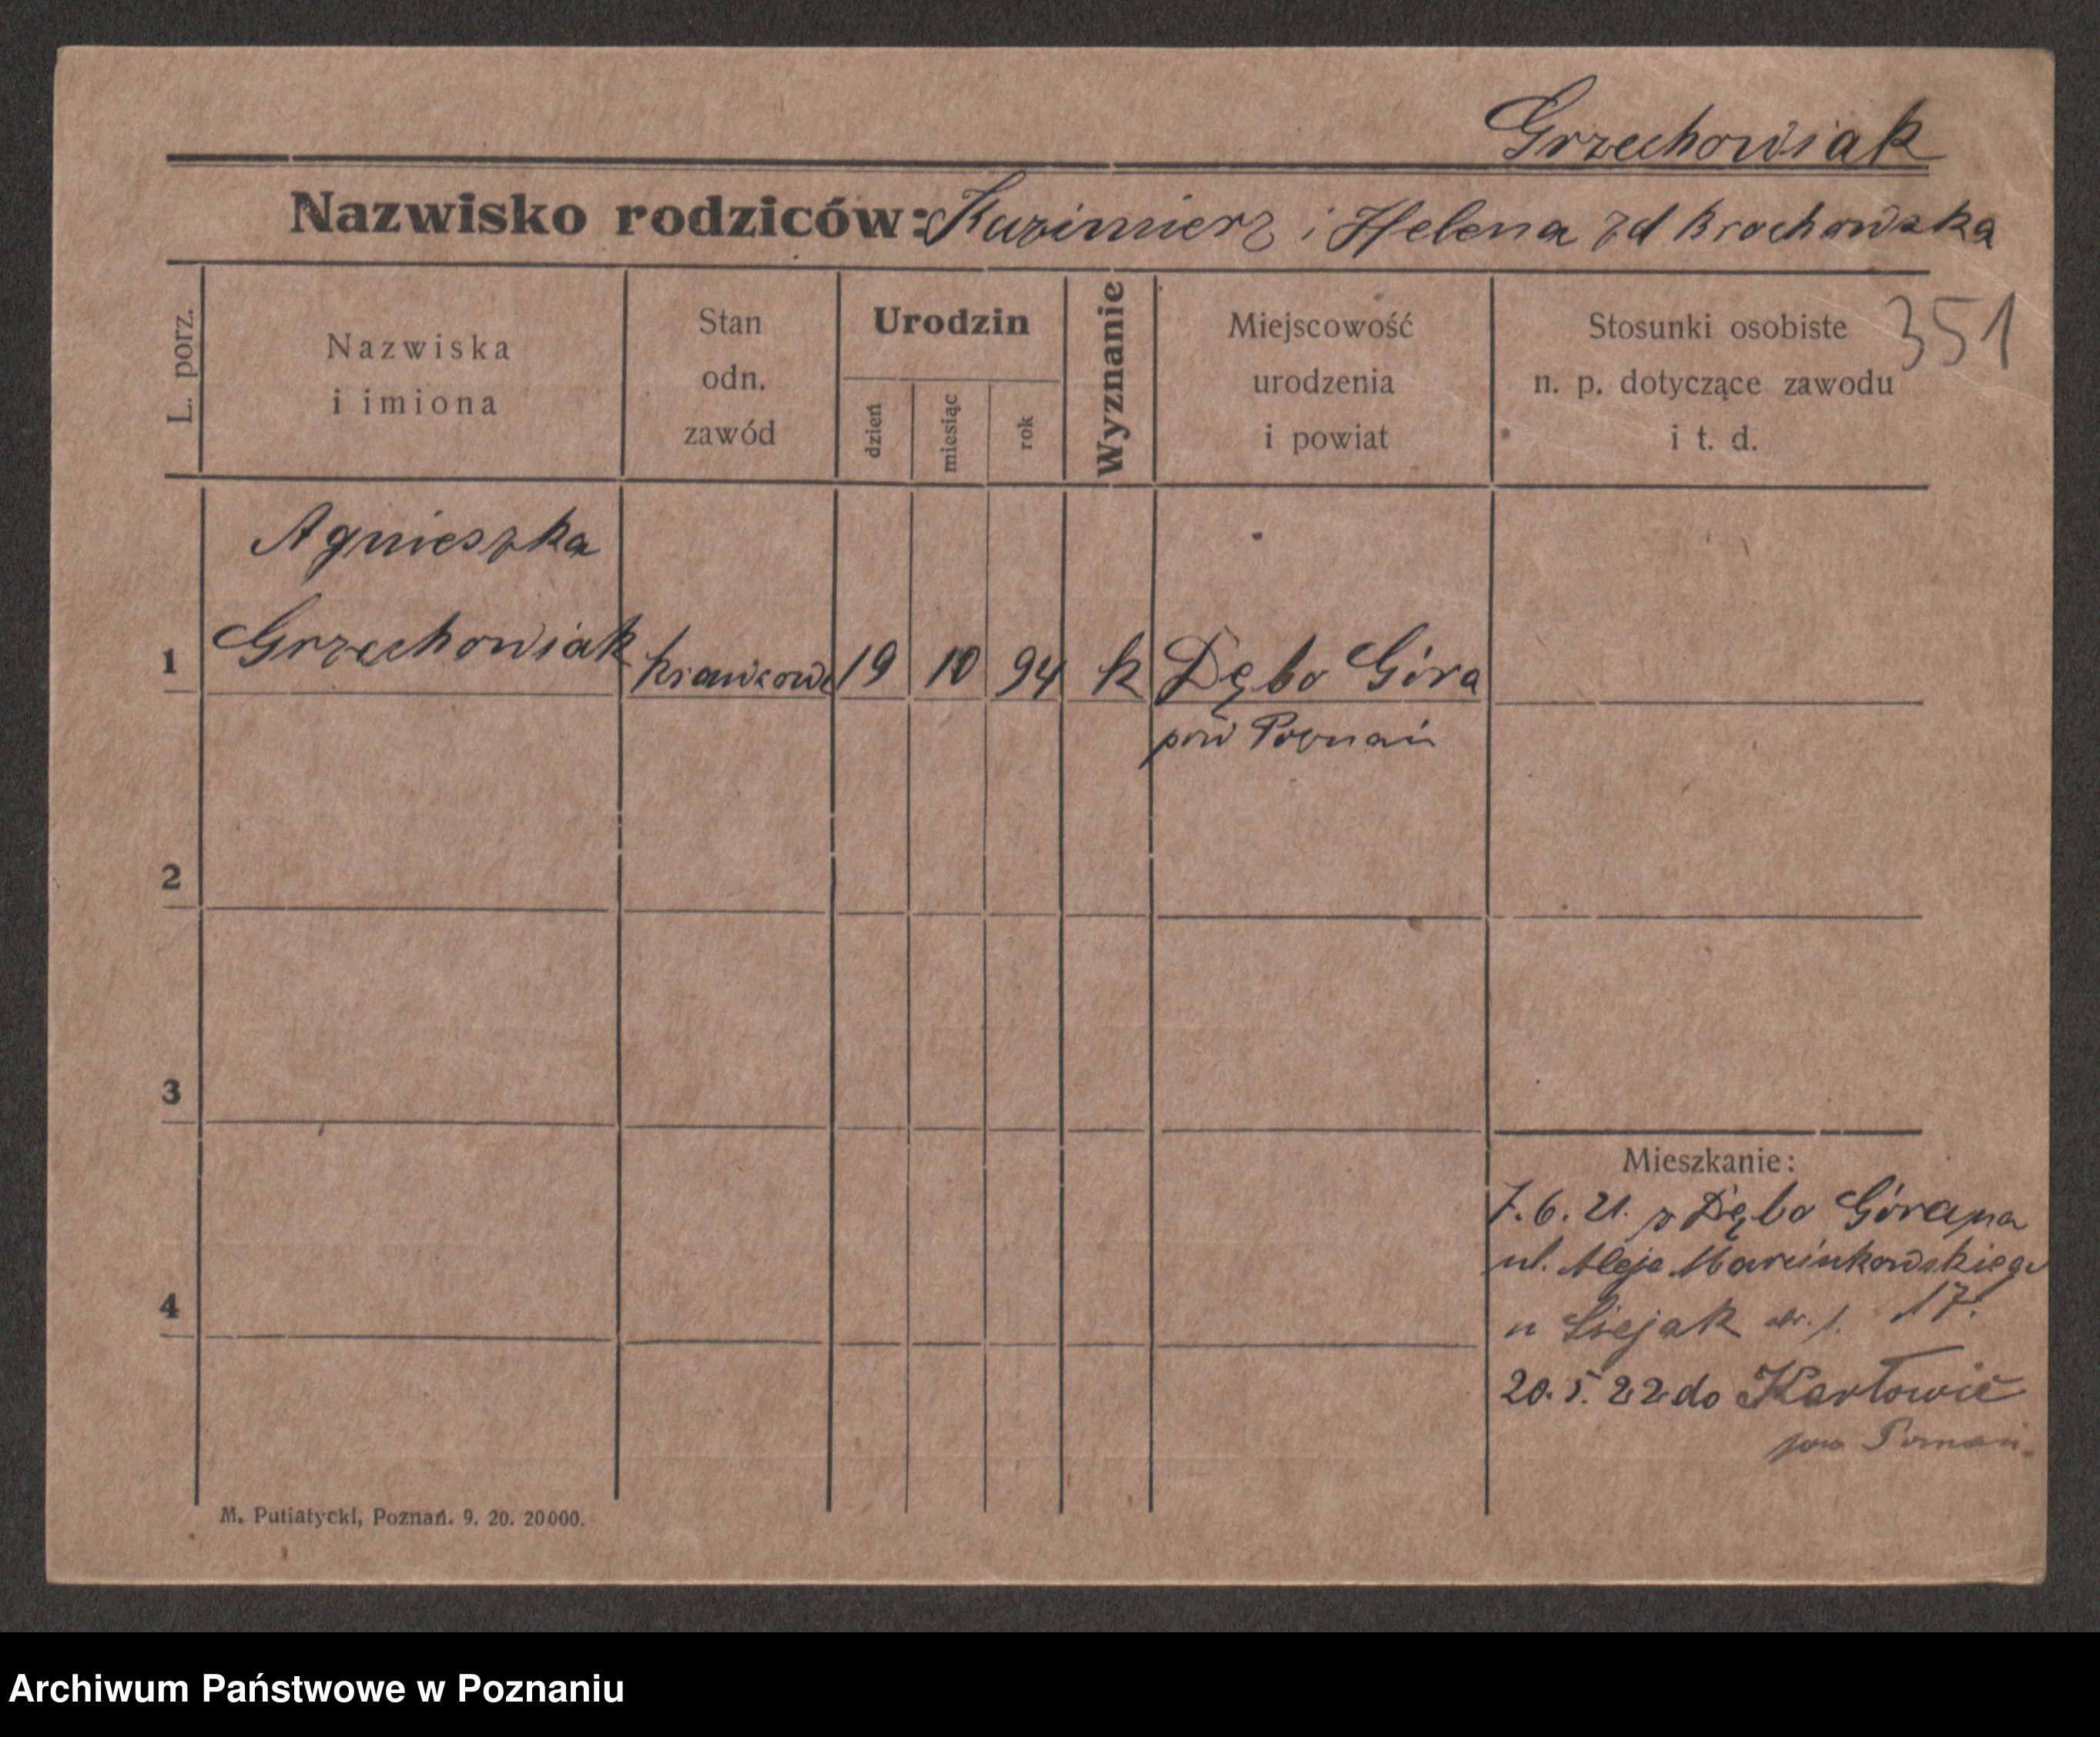 Grzechowiak
Nazwisko rodziców: Kazimierz i Helena zd Brochowska
351
L. porz.
Nazwiska
i imiona
Stan
odn.
zawód
Urodzin
dzień
miesiąc
rok
Wyznanie
Miejscowość
urodzenia
i powiat
Stosunki osobiste
n. p. dotyczące zawodu
i t. d.
Agnieszka
1 Grzechowiak krawcowa 19 10 94 k Dębo Góra
pow Poznań
2
3
Mieszkanie:
7. 6. 21. z Dębo Góra na
ul. Aleje Marcinkowskiego
17.
4
u
20. 5. 22 do Karłowic
pow Poznań.
M. Putiatycki, Poznań. 9. 20. 20000.
Archiwum Państwowe w Poznaniu